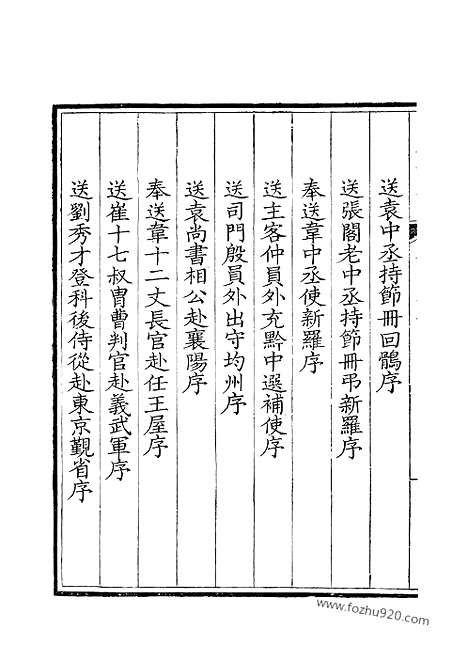 送袁中丞持節冊回鶻序
送張閣老中丞持節冊弔新羅序
奉送韋中丞使新羅序
送主客仲員外充黔中選補使序
送司門殷員外出守均州序
送袁尚書相公赴襄陽序
奉送韋十二丈長官赴任王屋序
送崔十七叔胄曹判官赴義武軍序
送劉秀才登科後侍從赴東京觐省序
www.fozhu920.com